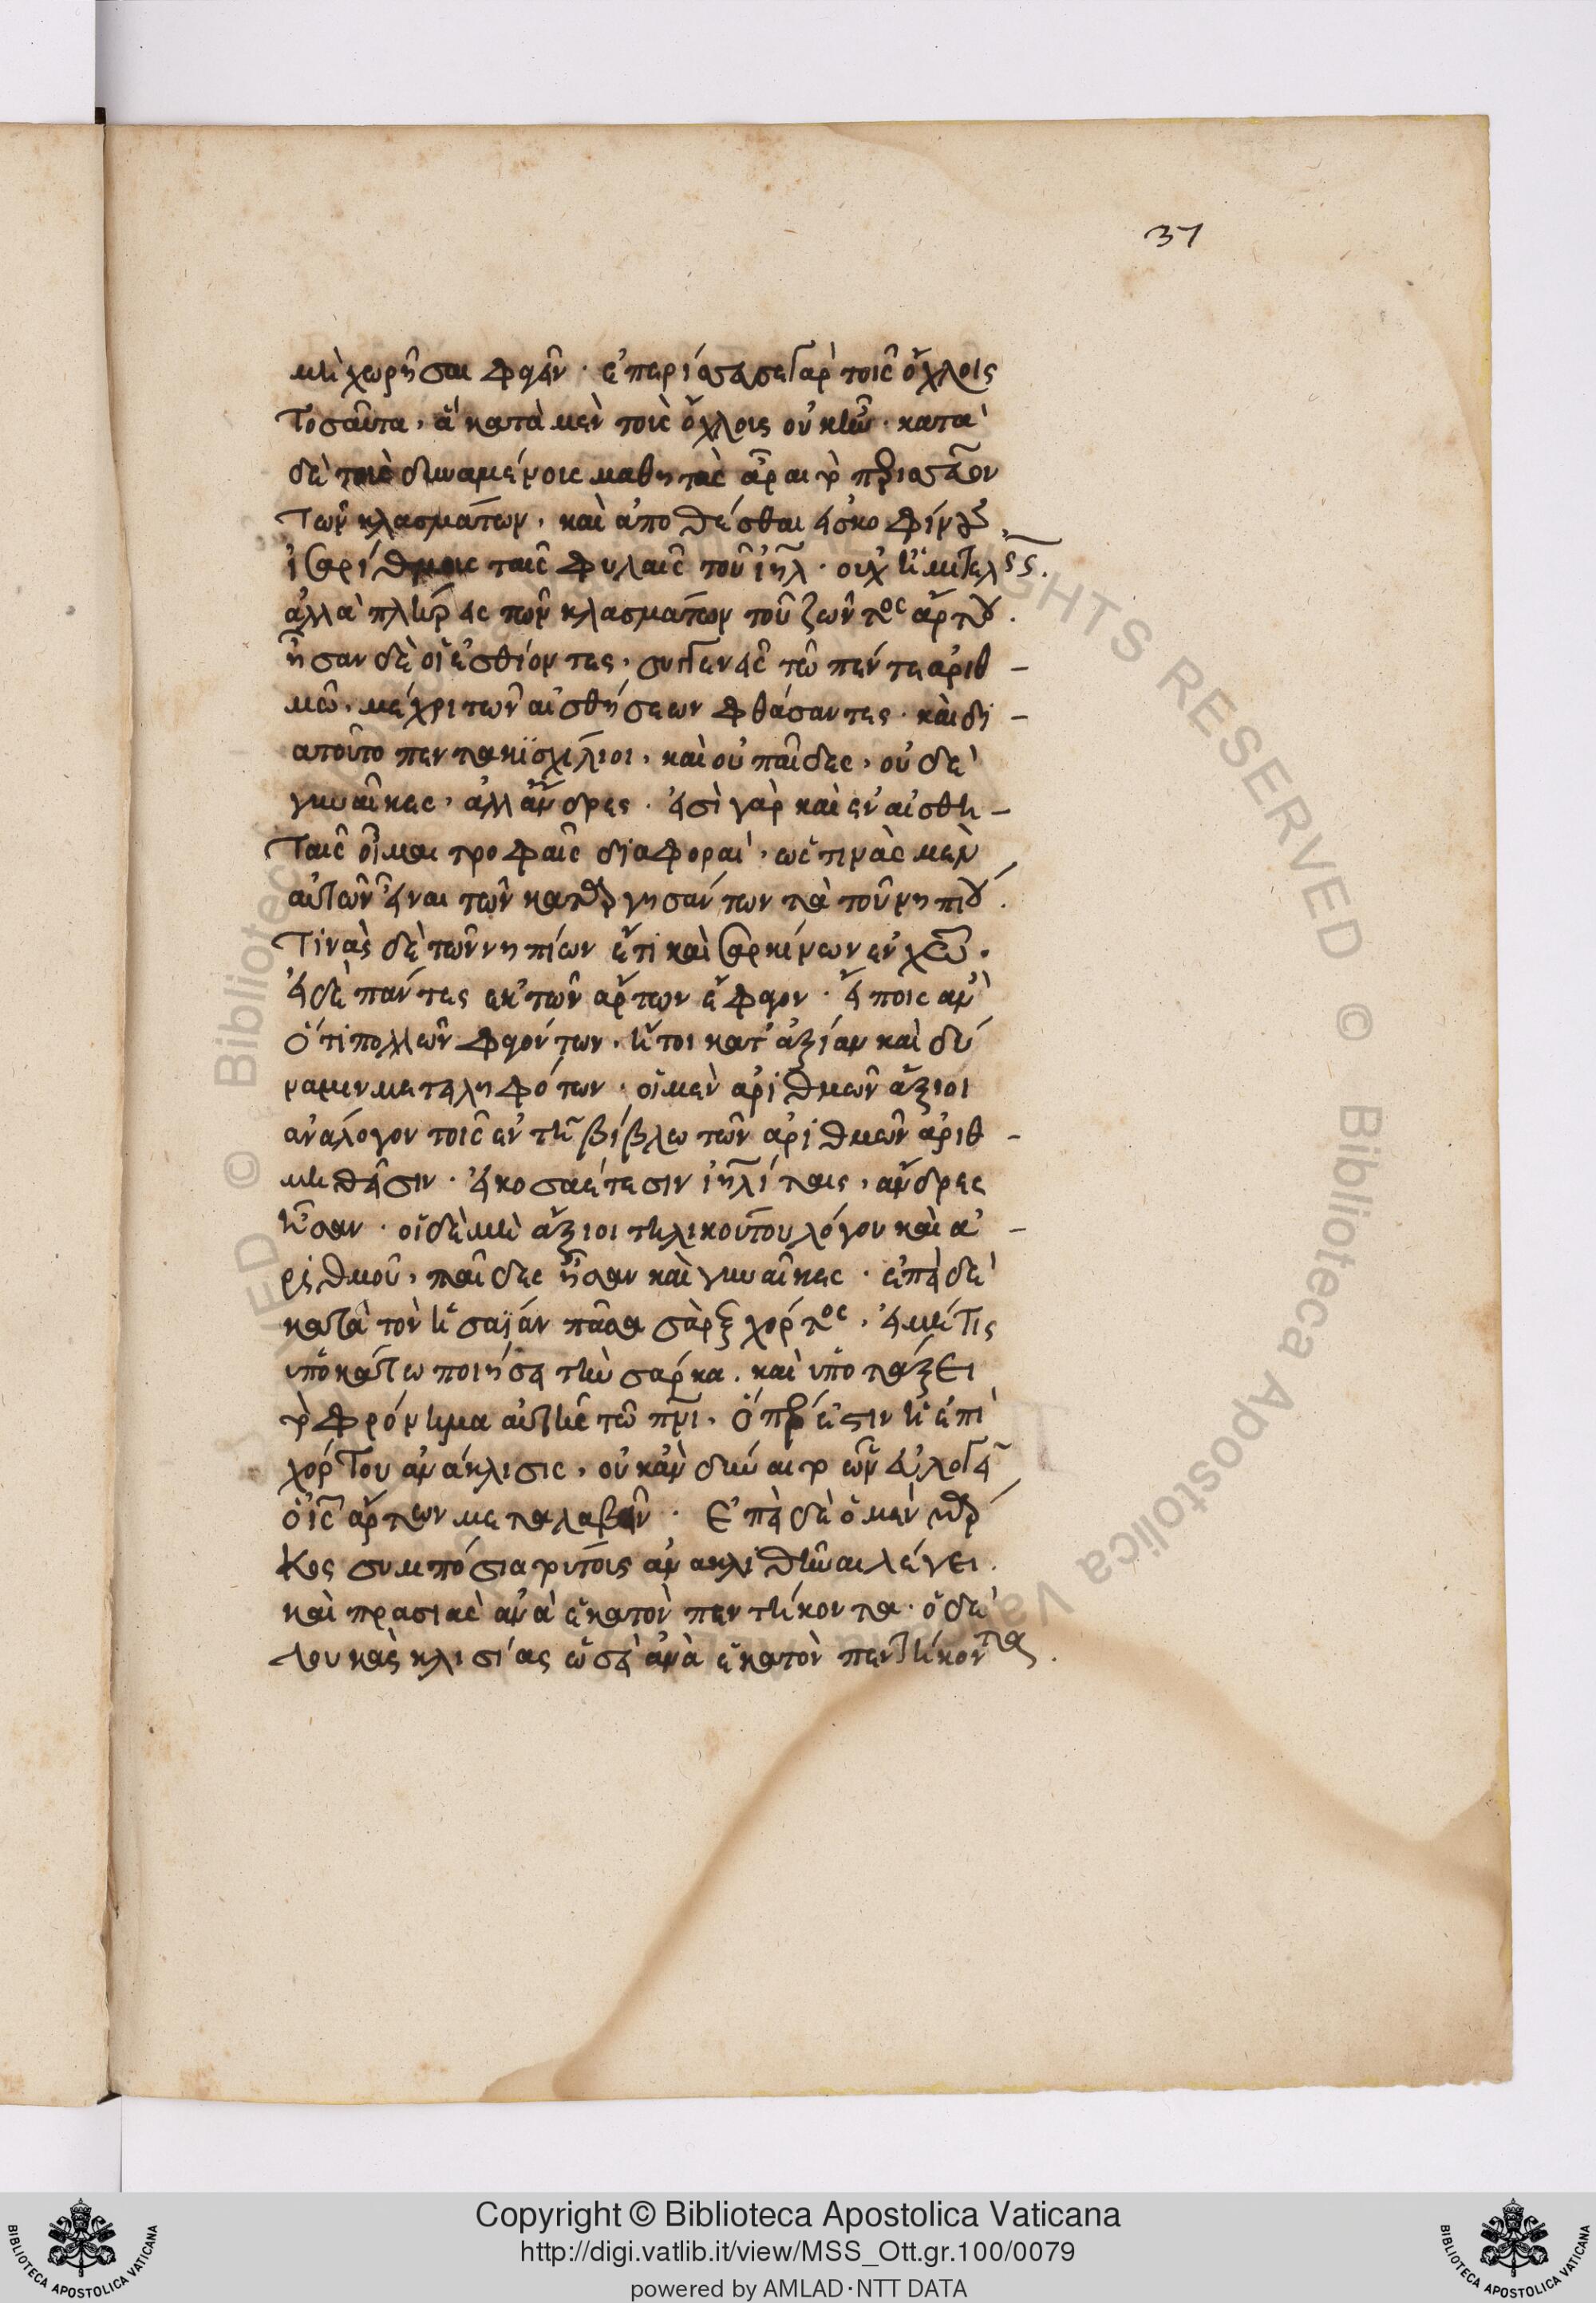 37
μὴ χωρῆσαι φαγεῖν · ἐπερίσσευσε γὰρ τοῖς ὄχλοις
τοσαῦτα, ἃ κατὰ μὲν τοὺς ὄχλους οὐκ ἦν · κατὰ
δὲ τοὺς δυναμένους μαθητὰς ἆραι τὸ περισσεῦον
τῶν κλασμάτων, καὶ ἀποθέσθαι εἰς κοφίνους
ἰσαρίθμους ταῖς φυλαῖς τοῦ ἰηλ · οὐχ ἡμιτελεῖς.
ἀλλὰ πλήρεις τῶν κλασμάτων τοῦ ζῶντος ἄρτου.
ἦσαν δὲ οἱ ἐσθίοντες, συγγενεῖς τῶ πέντε ἀριθ-
μῶ, μέχρι τῶν αἰσθήσεων φθάσαντες · καὶ δι-
ατοῦτο πεντακισχίλιοι, καὶ οὐ παῖδες, οὐδὲ
γυναῖκες, ἀλλ' ἄνδρες · εἰσὶ γὰρ καὶ ἐν αἰσθη-
ταῖς οἶμαι τροφαῖς διαφοραί, ὡς τινὰς μὲν
αὐτῶν εἶναι τῶν καταργησάντων τὰ τοῦ νηπίου.
τινὰς δὲ τῶν νηπίων ἔτι καὶ σαρκίνων ἐν χω.
εἰ δὲ πάντες ἐκ τῶν ἄρτων ἔφαγον · εἴποις ἂν
ὅτι πολλῶν φαγόντων, ἤτοι κατ' ἀξίαν καὶ δύ
ναμιν μετειληφότων · οἱ μὲν ἀριθμῶν ἄξιοι
ἀνάλογον τοῖς ἐν τῆ βίβλω τῶν ἀριθμῶν ἀριθ-
μηθεῖσιν · εἰκοσαέτεσιν ἰηλίταις, ἄνδρες
ἦσαν · οἱ δὲ μὴ ἄξιοι τηλικούτου λόγου καὶ ἀ-
ριθμοῦ, παῖδες ἦσαν καὶ γυναῖκες · ἐπεὶ δὲ
κατὰ τὸν ἡσαΐαν πᾶσα σὰρξ χόρτος, εἰ μή τις
ὑποκάτω ποιήσει τὴν σάρκα. καὶ ὑποτάξει
τὸ φρόνημα αὐτῆς τῶ πνι, ὅπερ ἐστιν ἡ ἐπὶ
χόρτου ἀνάκλισις, οὐκ ἂν δύναιτο ὧν εὐλογεῖ
ὁ ις ἄρτων μεταλαβεῖν · Ἐπεὶ δὲ ὁ μὲν μάρ
κος συμπόσια τούτοις ἀνακλιθῆναι λέγει.
καὶ πρασιὰς ἀνὰ ἑκατὸν πεντήκοντα · ὁ δὲ
λουκᾶς κλισίας ὡσεὶ ἀνὰ ἑκατὸν πεντήκοντα.
Copyright © Biblioteca Apostolica Vaticana
http://digi.vatlib.it/view/MSS_Ott.gr.100/0079
powered by AMLAD·NTT DATA